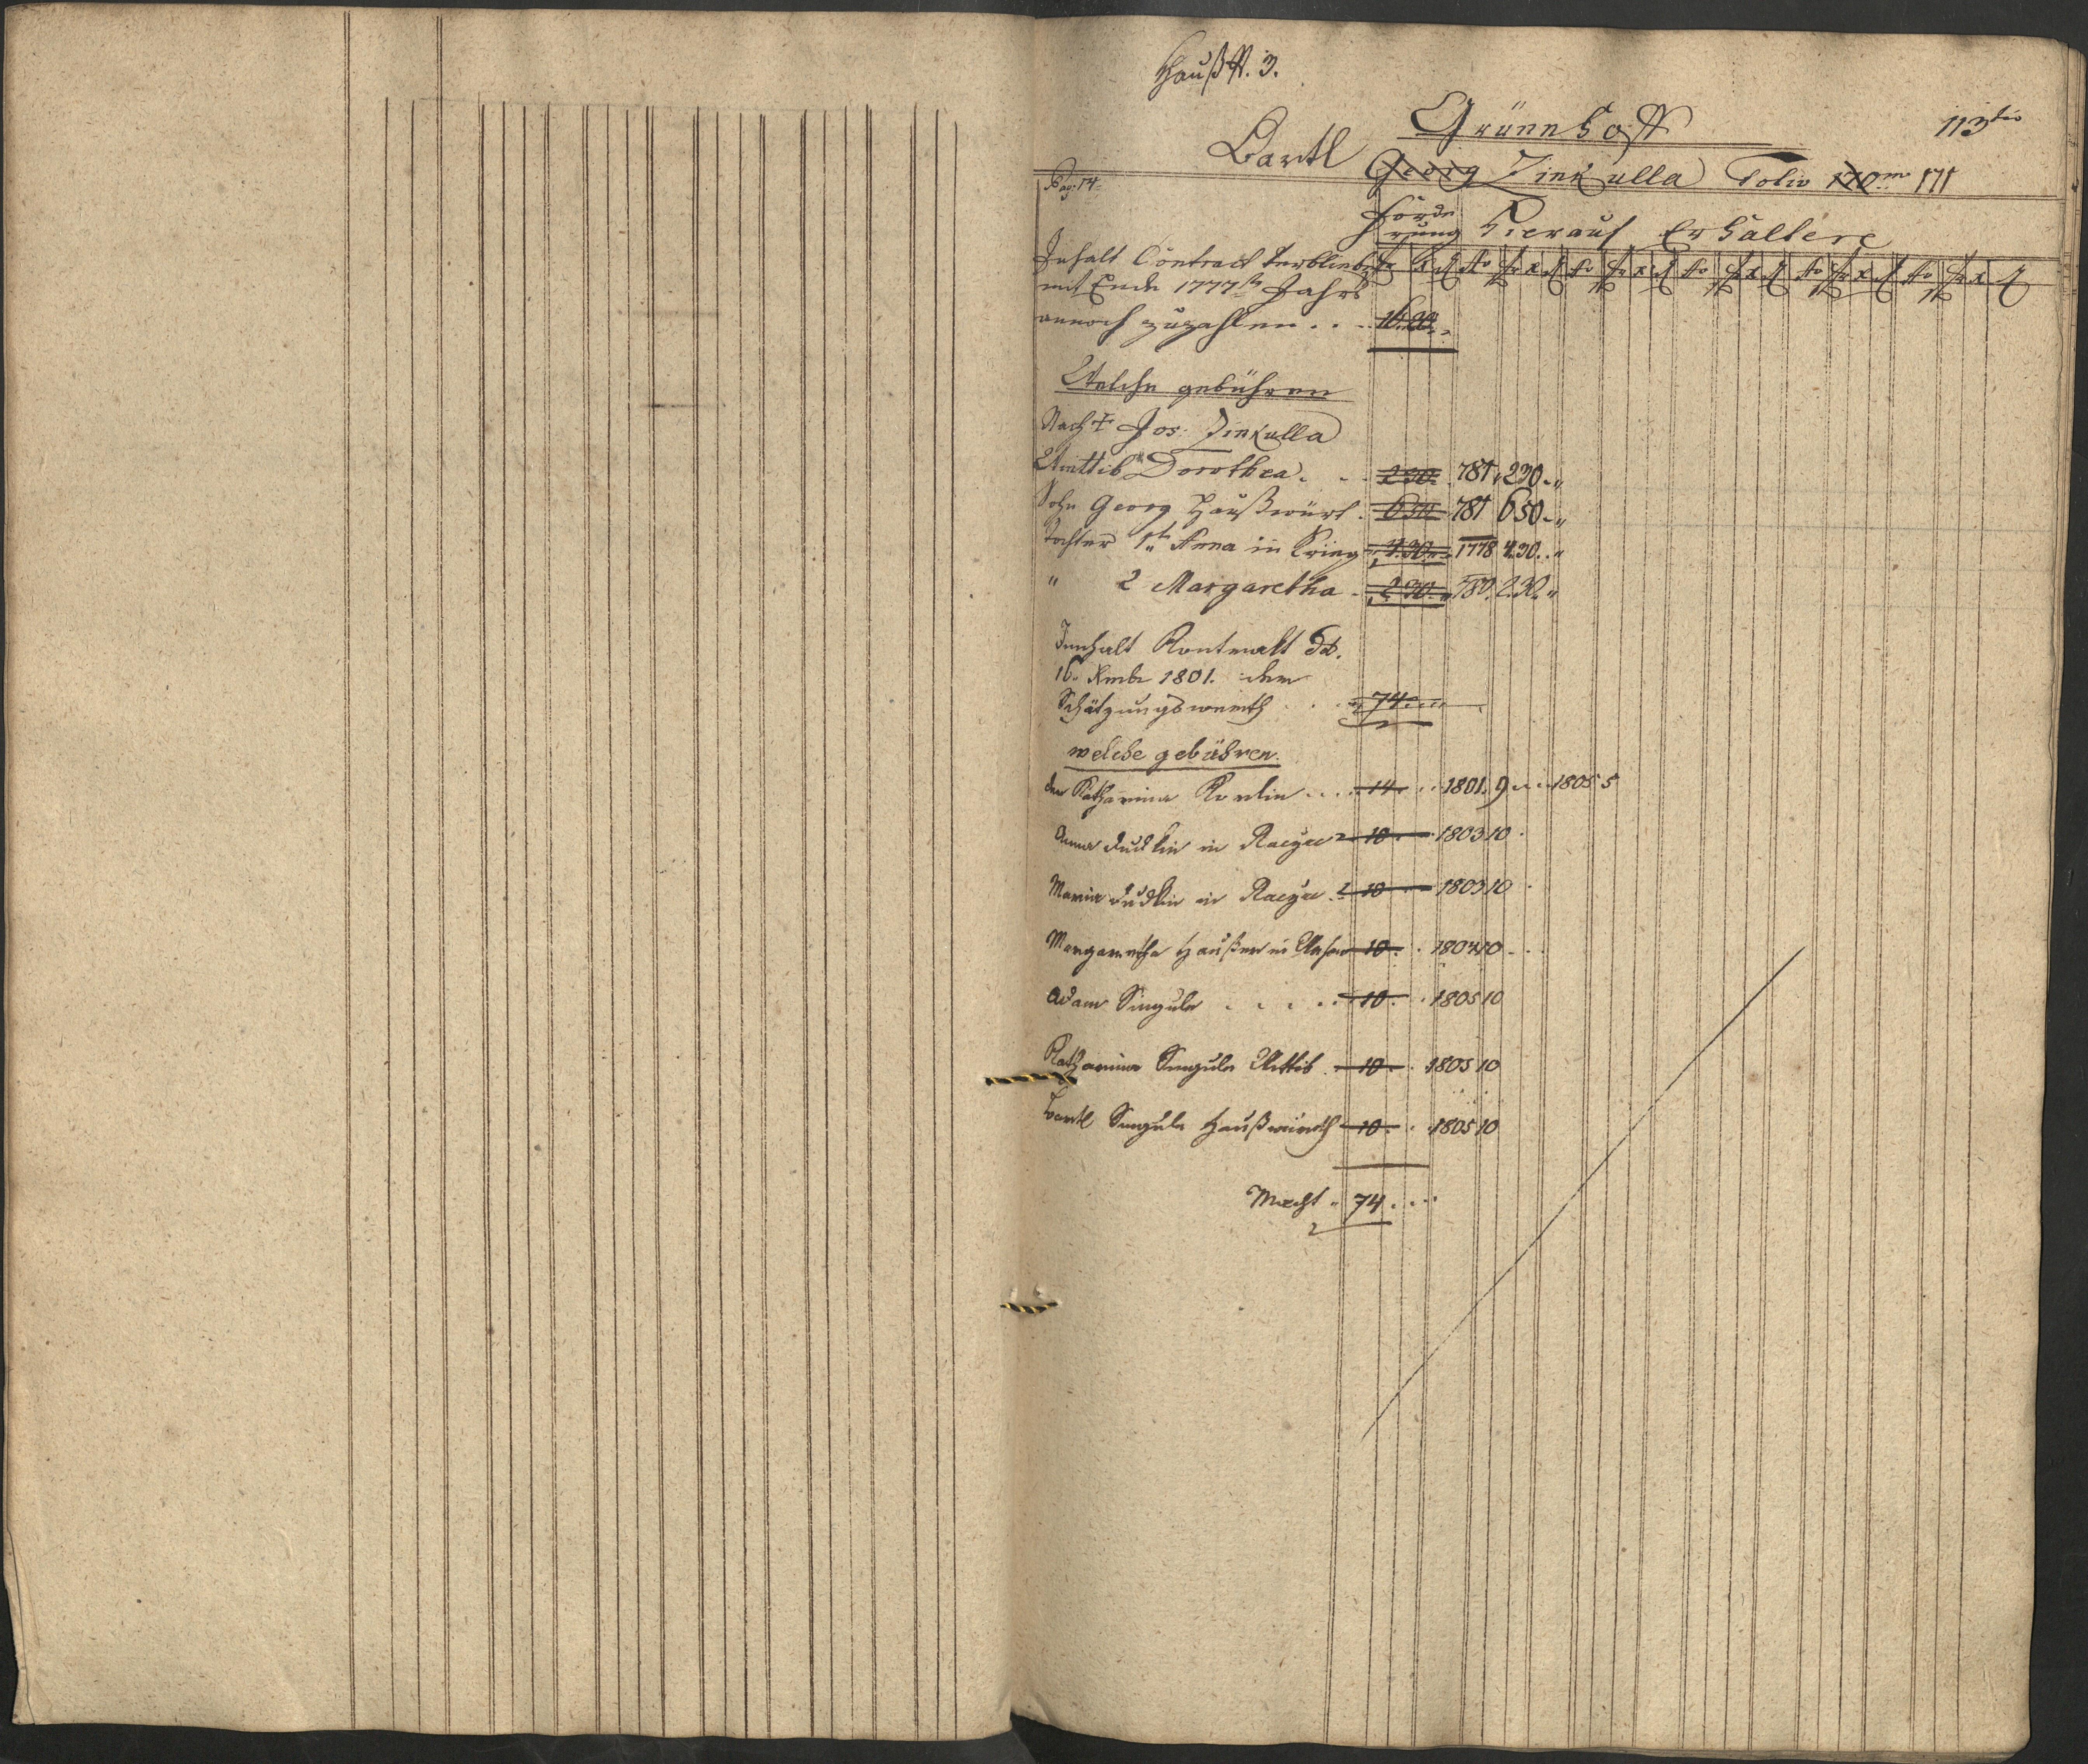 Hauß N. 3.
113tio
Grünnhoff
Bartl Georg Zinkulla Folio 170mo 171
Pag: 14
Förde
rung Hierauf Erhaltere
Inhalt Contract verblieb
mit Ende 1777ten Jahrs
annoch zuzahlen . . . 16.20.
Welche gebühren
Nach † Jos: Zinkulla
Wittib Dorothea . . . 2 30 . 781 . 2 30 . "
Sohn Georg Haußwürt . 6 50 781 6 50 . "
Tochter 1te Anna in Krieg 4.30 1778 4.30 . "
" 2 Margaretha . 2 30 . 780 . 2.30 . "
Innhalt Kontrakt dd.
16. Xmbr 1801. der
Schätzungswerth . . . 74.
welche gebühren.
der Katharina . . . 14 . . 1801 . 9 . . . 1805 5
Anna Dudkin in 10 . 1803 10 .
Maria Dudkin in 10 . 1803 10 .
Margaretha Haußer in 10 . . 1804 10 . .
Adam Singula . . . . . 10 . . 1805 10
Katharina Singula Wittib . 10 . . 1805 10
Bartl Singula Haußwirth 10 . . 1805 10
Macht . 74 . . .